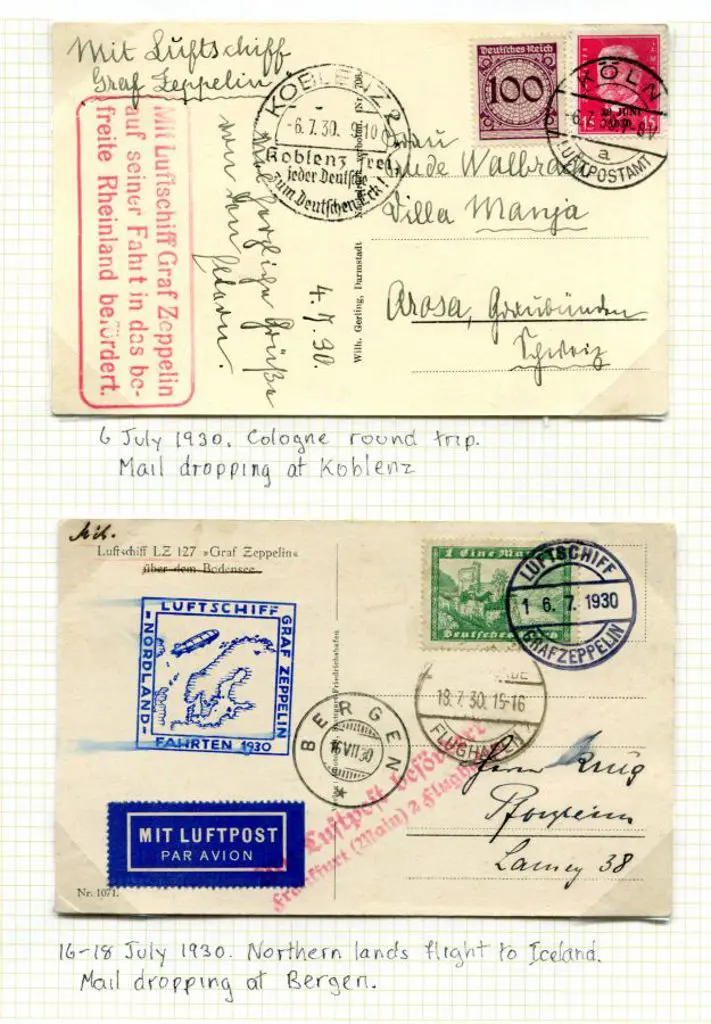 Mit Luftschiff
Graf Zeppelin
Mit Luftschiff Graf Zeppelin
auf seiner Fahrt in das be-
freite Rheinland befördert.
KOBLENZ 2
-6.7.30. 9-10
Koblenz frei
jeder Deutsche
zum Deutschen Eck!
Deutsches Reich
100
KÖLN
a
LUFTPOSTAMT
15
Walbrack
Villa Manja
Arosa, Graubünden
Schweiz
herzliche Grüße
von den
Eltern.
4.7.30.
Wilh. Gerling, Darmstadt
6 July 1930. Cologne round trip.
Mail dropping at Koblenz
Luftschiff LZ 127 »Graf Zeppelin«
über dem Bodensee
LUFTSCHIFF
GRAF ZEPPELIN
-NORDLAND-
FAHRTEN 1930
1 Eine Mark
Deutsches Reich
LUFTSCHIFF
1 6. 7. 1930
GRAFZEPPELIN
18.7.30. 15-16
FLUGHAFEN
BERGEN
16 VII 30
Luftpost befördert
Frankfurt (Main) 2 Flughafen
MIT LUFTPOST
PAR AVION
Herrn Krug
Pforzheim
Lamey 38
Nr. 1071.
16-18 July 1930. Northern lands flight to Iceland.
Mail dropping at Bergen.